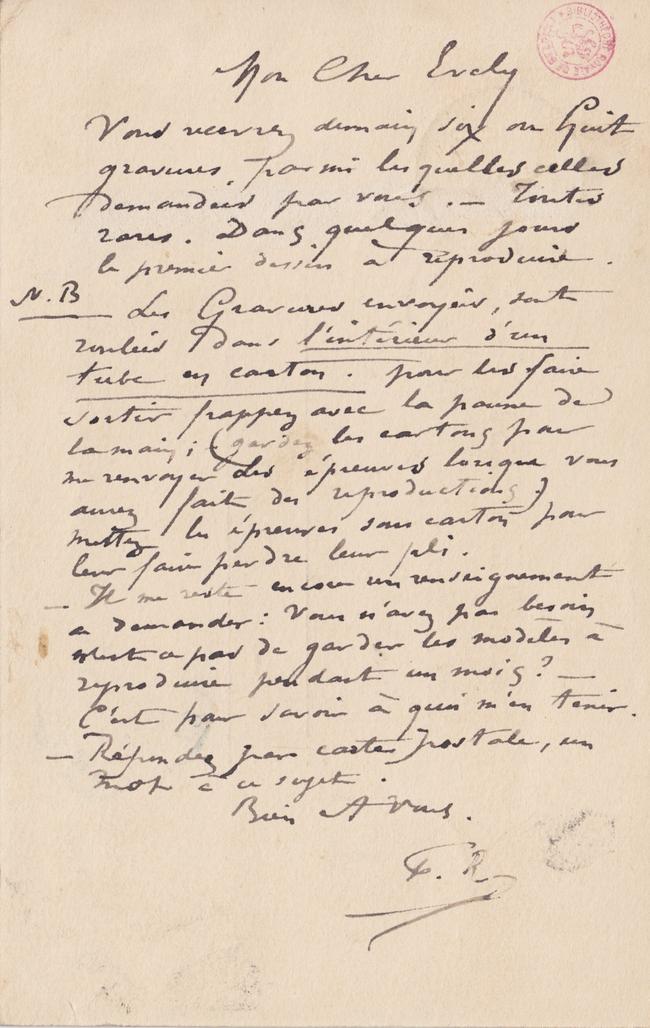 Mon Cher Evely
Vous recevrez demain six ou huit
gravures parmi lesquelles celles
demandées par vous. — Toutes
rares. Dans quelques jours
le premier dessin à reproduire.
N. B Les Gravures envoyées, sont
roulées dans l'intérieur d'un
tube en carton. pour les faire
sortir frappez avec la paume de
la main; (gardez les cartons pour
me renvoyer les épreuves lorsque vous
aurez fait des reproductions)
mettez les épreuves sous carton pour
leur faire perdre leur pli.
— Il me reste encore un renseignement
a demander: Vous n'avez pas besoin
n'est ce pas de garder les modèles à
reproduire pendant un mois? —
C'est pour savoir à quoi m'en tenir.
— Répondez par carte postale, un
mot à ce sujet.
Bien A Vous.
F. R